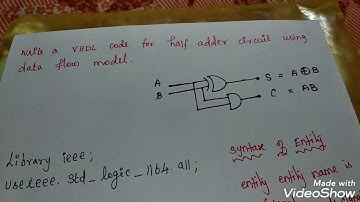 write a VHDL code for half adder circuit using
data flow model.
A
B
S = A ⊕ B
C = AB
Library ieee;
Use ieee. std_logic_1164. all;
Syntax of Entity
entity entity name is
Made with
VideoShow